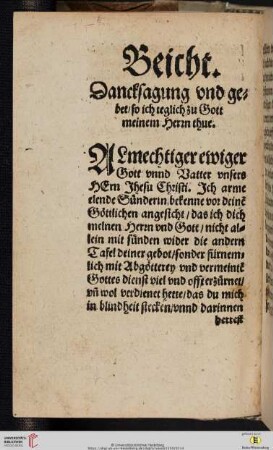 Beicht.
Dancksagung vnd ge-
bet/ so ich teglich zu Gott
meinem Herrn thue.
ALmechtiger ewiger
Gott vnnd Vatter vnsers
HErn Jhesu Christi. Ich arme
elende Sünderin bekenne vor deinē
Göttlichen angesicht/ das ich dich
meinen Herrn vnd Gott/ nicht al-
lein mit sünden wider die andern
Tafel deiner gebot/ sonder fürnem-
lich mit Abgötterey vnd vermeintē
Gottes dienst viel vnd offt erzürnet/
vñ wol verdienet hette/ das du mich
in blindheit stecken/ vnnd darinnen
UNIVERSITÄTS-
BIBLIOTHEK
HEIDELBERG
© Universitätsbibliothek Heidelberg